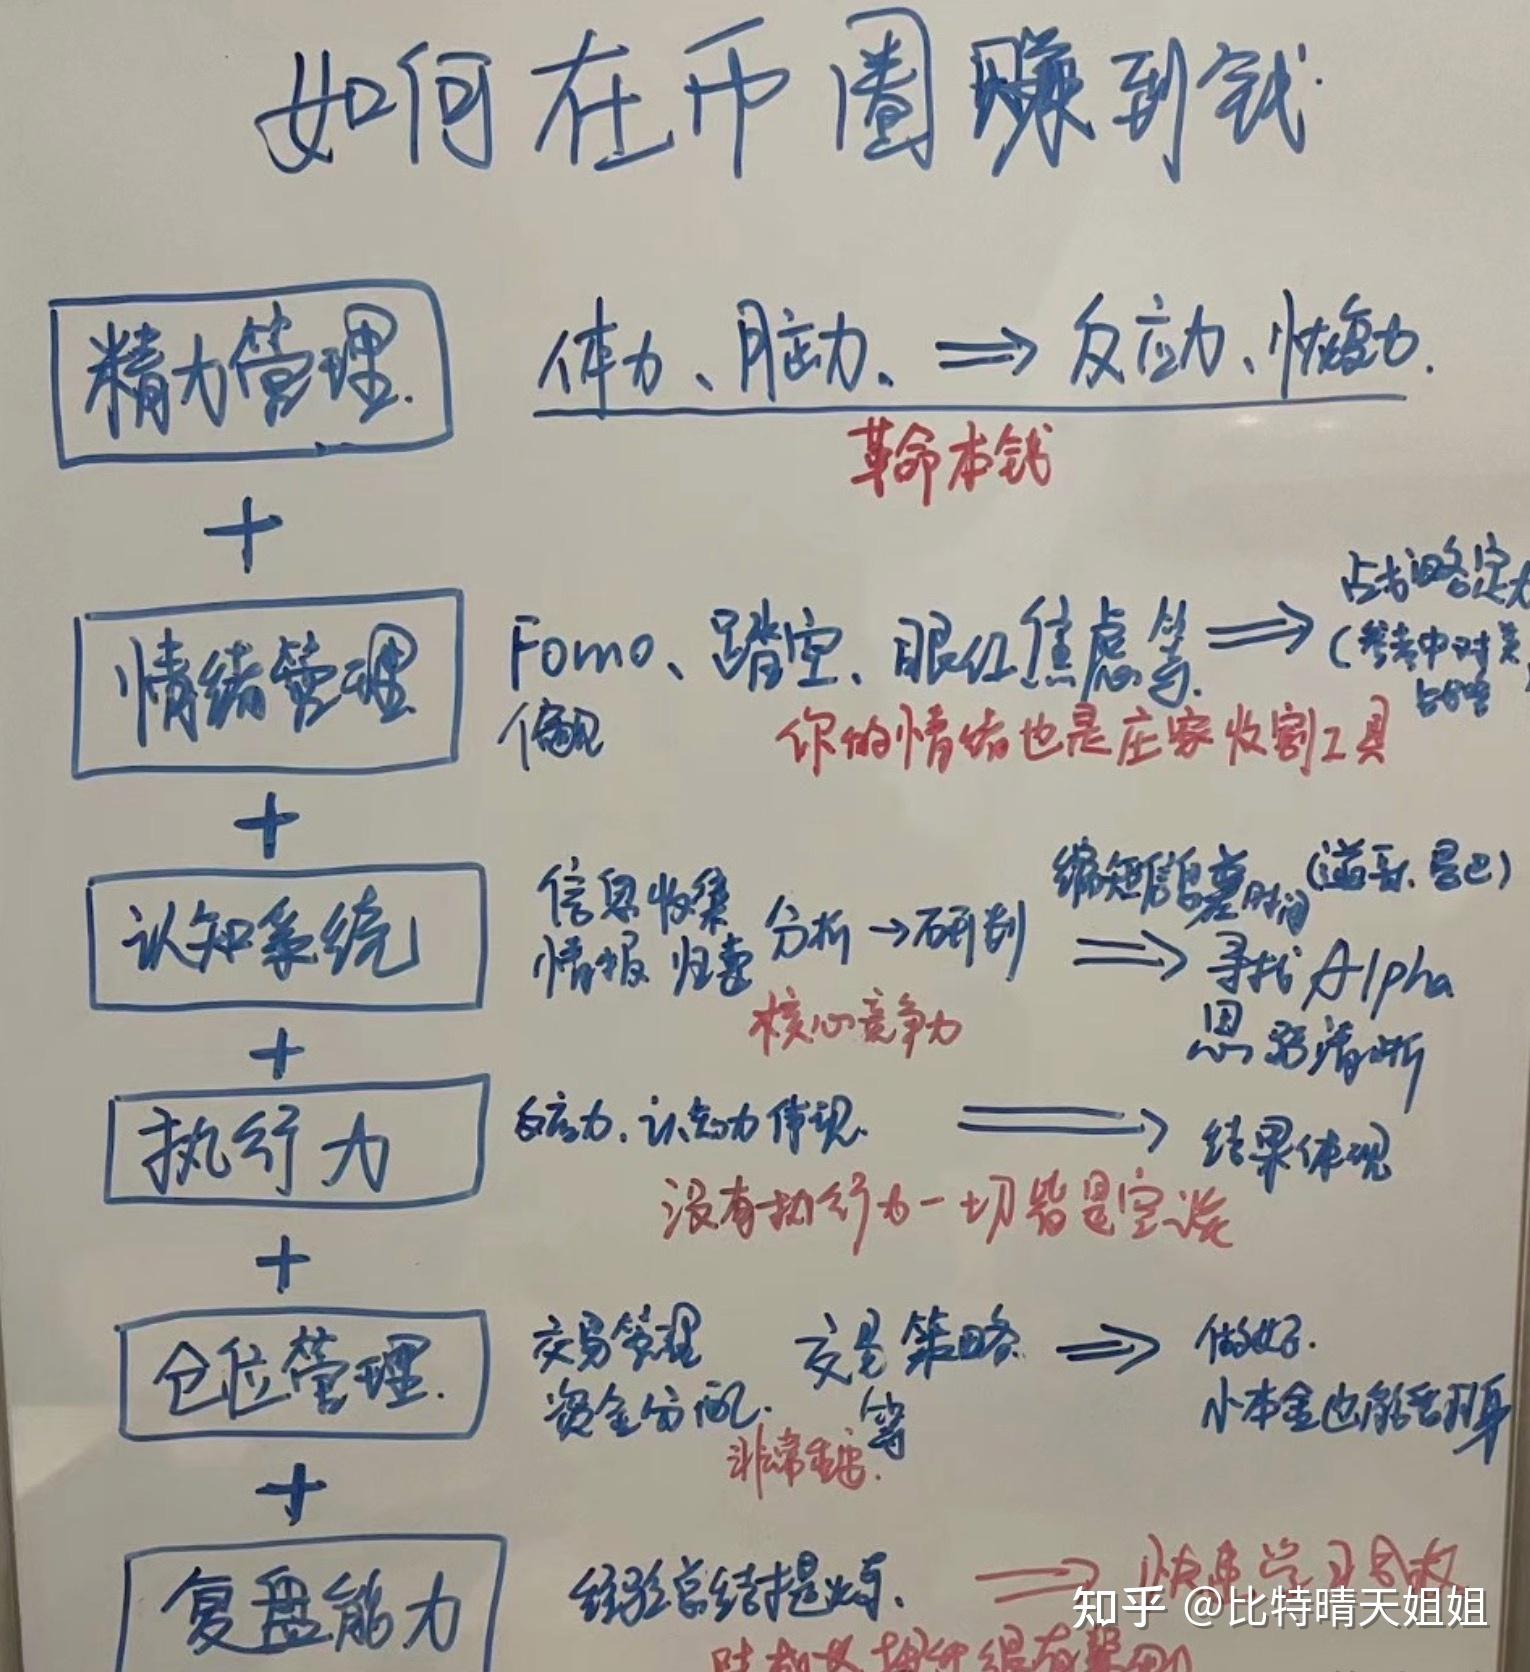 如何在币圈赚到钱.
精力管理.
体力、脑力、⇒反应力、恢复力.
革命本钱
+
情绪管理
Fomo、踏空、眼红焦虑等.⇒
偏见
你的情绪也是庄家收割工具
+
认知系统
信息收集
情报 归集
分析→研判
核心竞争力
⇒
缩短信息差时间
寻找Alpha
思路清晰
+
执行力
反应力、认知力体现.
⇒
结果体现
没有执行力一切皆是空谈
+
仓位管理.
交易管理
资金分配.
交易策略
等
非常重要.
⇒
做好.
小本金也能翻身
+
复盘能力
经验总结提炼.
⇒
快速学习
知乎 @比特晴天姐姐